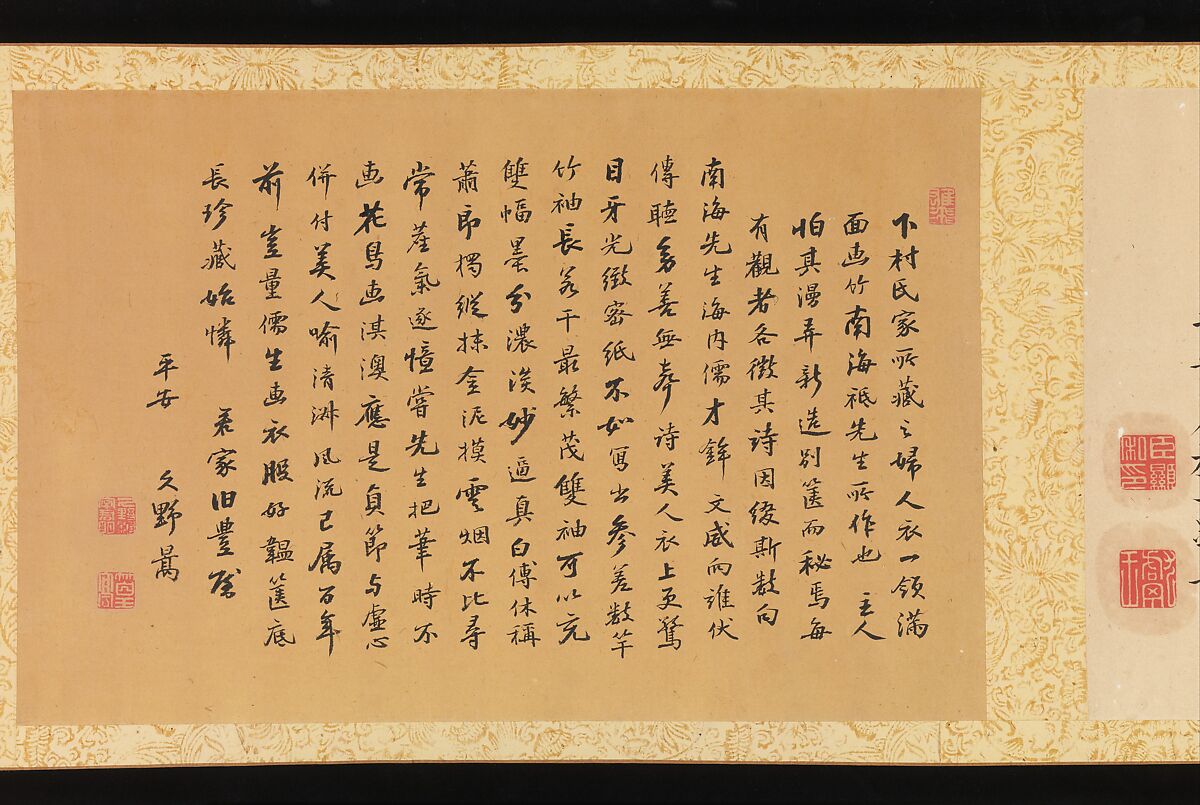 下村氏家所藏之婦人衣一領滿
面画竹南海祗先生所作也　主人
怕其漫弄新造別篋而秘焉每
有觀者各徵其詩因綴斯数句
南海先生海内儒才鋒文威向誰伏
傳聴多善無声詩美人衣上更驚
目牙光緻密紙不如写出参差数竿
竹袖長若干最繁茂雙袖可以充
雙幅墨分濃淡妙逼真白傅休稱
蕭郎獨縱抹金泥摸雲烟不比尋
常產氣遂憶嘗先生把筆時不
画花鳥画淇澳應是貞節与虚心
併付美人喻清淋風流已属百年
前豈量儒生画衣服好韞篋底
長珍藏始憐　君家旧豊屋
平安　久野暠